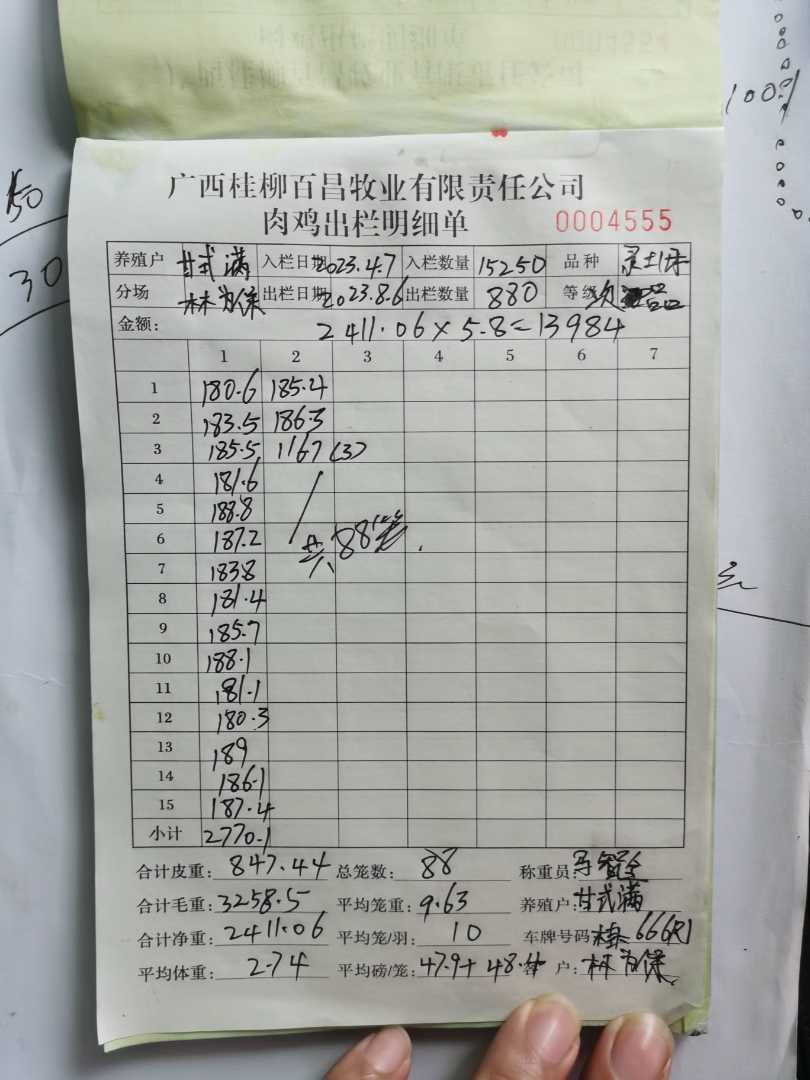 广西桂柳百昌牧业有限责任公司
肉鸡出栏明细单 0004555
养殖户 甘式满 入栏日期 2023.4.7 入栏数量 15250 品种
分场 林为保 出栏日期 2023.8.6 出栏数量 880 等级 次品
金额: 2411.06×5.8=13984
1 2 3 4 5 6 7
1 180.6 185.4
2 183.5 186.3
3 185.5 116.7 (3)
4 181.6
5 188.8
6 187.2 共88笼.
7 183.8
8 181.4
9 185.7
10 188.1
11 181.1
12 180.3
13 189
14 186.1
15 187.4
小计 2770.1
合计皮重: 847.44 总笼数: 88 称重员:
合计毛重: 3258.5 平均笼重: 9.63 养殖户: 甘式满
合计净重: 2411.06 平均笼/羽: 10 车牌号码
平均体重: 2.74 平均磅/笼: 47.9+48.4 客户: 林为保
150
30
100